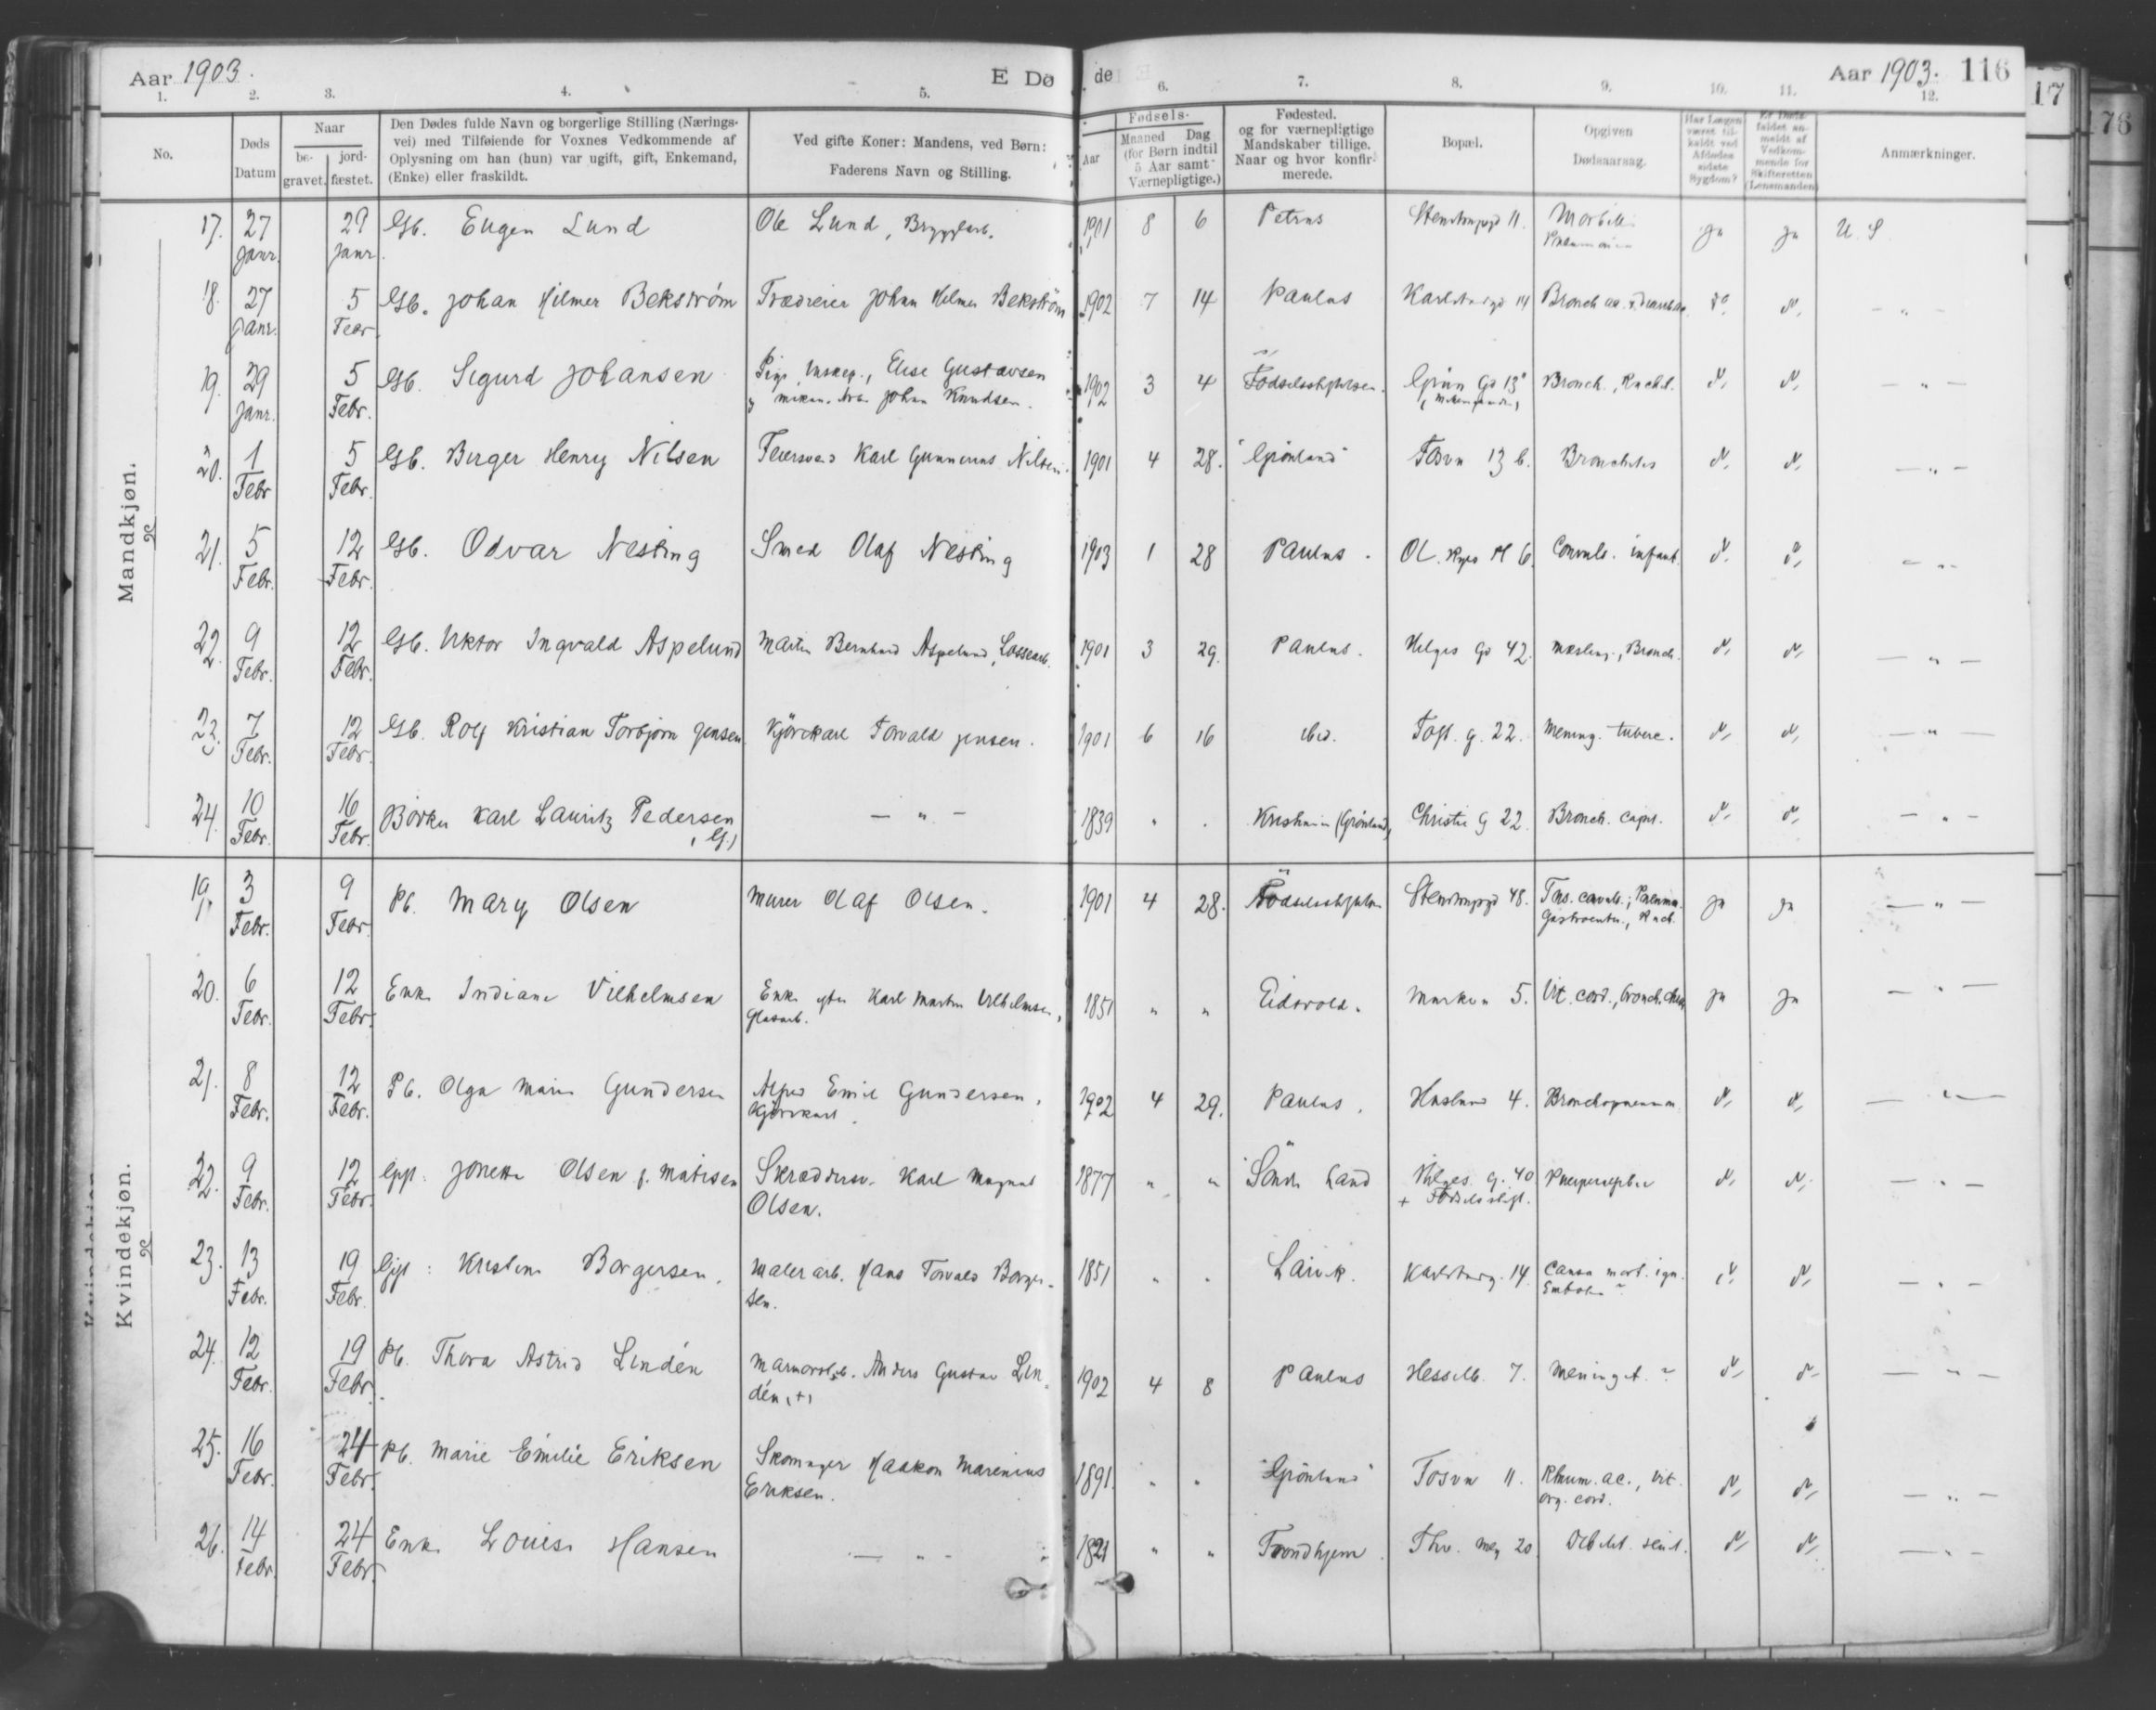 Aar 1903.
E Dø
de
Aar 1903. 116
17
176
1. 2. 3. 4. 5. 6. 7. 8. 9. 10. 11. 12.
No.
Døds Datum
Naar
be-gravet.
jord-fæstet.
Den Dødes fulde Navn og borgerlige Stilling (Nærings-
vei) med Tilføiende for Voxnes Vedkommende af
Oplysning om han (hun) var ugift, gift, Enkemand,
(Enke) eller fraskildt.
Ved gifte Koner: Mandens, ved Børn:
Faderens Navn og Stilling.
Fødsels-
Aar
Maaned Dag
(for Børn indtil
5 Aar samt
Værnepligtige.)
Fødested.
og for værnepligtige
Mandskaber tillige.
Naar og hvor konfir-
merede.
Bopæl.
Opgiven
Dødsaarsag.
Har Lægen
været til-
kaldt ved
Afdødes
sidste
Sygdom?
Er Døds-
faldet an-
meldt af
Vedkom-
mende for
Skifteretten
(Lensmanden)
Anmærkninger.
Mandkjøn.
17. 27 Janr. 29 Janr. Gb. Eugen Lund Ole Lund, Bryggarb. 1901 8 6 Petrus 11. Morbilli ja ja U. S
18. 27 Janr. 5 Febr. Gb. Johan Hilmer Bekström Johan Hilmer Bekström 1902 7 14 Paulus 14 Bronch — " —
19. 29 Janr. 5 Febr. Gb. Sigurd Johansen Elise Gustavsen
Johan Knudsen. 1902 3 4 Fødselsstiftelsen. Grün Gd 13 Bronch., Rachit. — " —
20. 1 Febr 5 Febr. Gb. Birger Henry Nilsen Karl Gunnerius Nilsen 1901 4 28. "Grönland" Tosvn 13 b. Bronchitis — " —
21. 5 Febr. 12 Febr. Gb. Odvar Nesting Smed Olaf Nesting 1903 1 28 Paulus. Ol. Ryes Pl 6. Convuls. infant. — " —
22. 9 Febr. 12 Febr. Gb. Viktor Ingvald Aspelund Martin Bernhard Aspelund, Lossearb. 1901 3 29. Paulus. Helges Gd 42. Mæsling., Bronch. — " —
23. 7 Febr. 12 Febr. Gb. Rolf Kristian Torbjørn Jensen Kjörekarl Torvald Jensen. 1901 6 16 ibid. Toft. g. 22. Mening. tuberc. — " —
24. 10 Febr. 16 Febr. Karl Lauritz Pedersen
(G.) — " — 1839 " " (Grönland) Christie G 22. Bronch. capil. — " —
Kvindekjøn.
19. 3 Febr. 9 Febr. Pb. Mary Olsen Murer Olaf Olsen. 1901 4 28. 48. Tus. convuls.; Pneumon.
Gastroenter., Rach. ja ja — " —
20. 6 Febr. 12 Febr. Enke Indiane Vilhelmsen Enke efter Karl Martin Vilhelmsen,
Glasarb. 1851 " " Eidsvold. Marken 5. Vit. cord., bronch. ja ja — " —
21. 8 Febr. 12 Febr. Pb. Olga Marie Gundersen Alfred Emil Gundersen,
Kjörekarl. 1902 4 29. Paulus. Haslund 4. Bronchopneumon. — " —
22. 9 Febr. 12 Febr. Gift: Jonette Olsen f. Matisen Skræddersv. Karl Magnus
Olsen. 1877 " " Söndr. Land Helges. G. 40
+ Fødselsstift. — " —
23. 13 Febr. 19 Febr. Gift: Kristine Borgersen. Malerarb. Hans Torvald Borger-
sen. 1851 " " Larvik. 14. Causa mort. ign.
Emboli ? — " —
24. 12 Febr. 19 Febr. Pb. Thora Astrid Lindén Anders Gustav Lin-
dén, (+) 1902 4 8 Paulus Hesselb. 7. Meningit. ? — " —
25. 16 Febr. 24 Febr. Pb. Marie Emilie Eriksen Skomager Haakon Marenius
Eriksen. 1891. " " "Grönland" Tosvn 11. Rheum. ac., vit.
org. cord. — " —
26. 14 Febr. 24 Febr. Enke Louise Hansen — " — 1821 " " Trondhjem. Thv. Mey 20 Debilit. senil. — " —